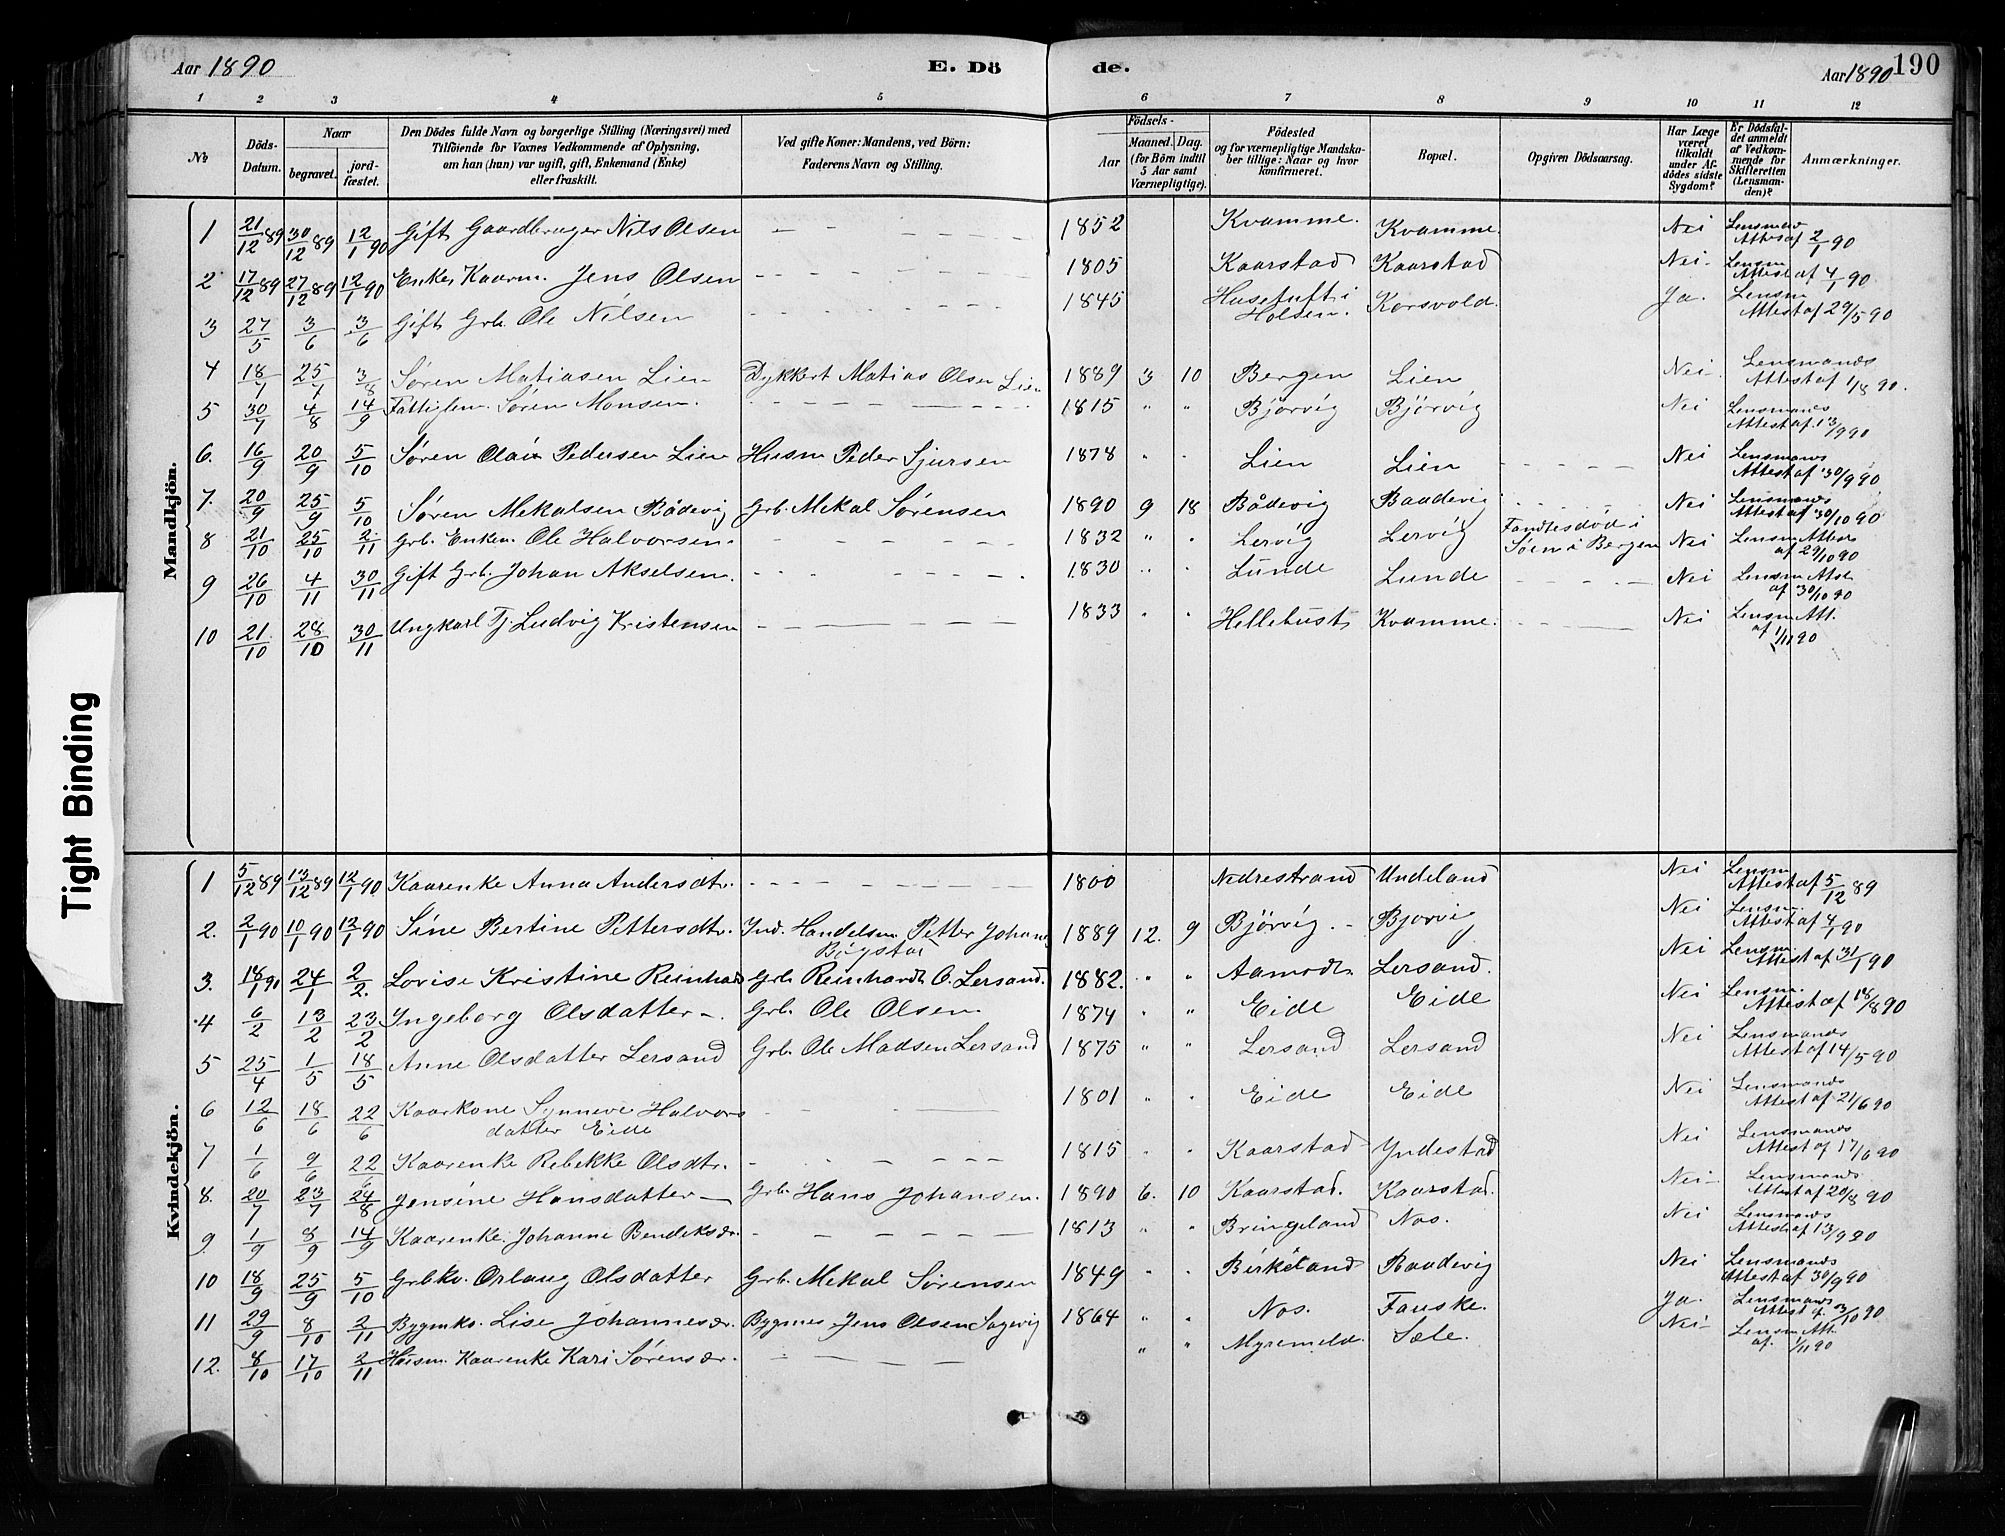 Aar 1890 E. Dö de. Aar 1890 190
1 2 3 4 5 6 7 8 9 10 11 12
No
Döds-Datum.
Naar
begravet.
jord-fæstet.
Den Dödes fulde Navn og borgerlige Stilling (Næringsvei) med
Tilföiende for Voxnes Vedkommende af Oplysning,
om han (hun) var ugift, gift, Enkemand (Enke)
eller fraskilt.
Ved gifte Koner: Mandens, ved Börn:
Faderens Navn og Stilling.
Födsels-
Aar
Maaned. Dag.
(for Börn indtil
5 Aar samt
Værnepligtige).
Födested
og for værnepligtige Mandska-
ber tillige: Naar og hvor
konfirmeret.
Bopæl.
Opgiven Dödsaarsag.
Har Læge
været
tilkaldt
under Af-
dödes sidste
Sygdom?
Er Dödsfal-
det anmeldt
af Vedkom-
mende for
Skifteretten
(Lensman-
den)?
Anmærkninger.
Mandkjön.
1 21/12 89 30/12 89 12/1 90 Gift Gaardbruger Nils Olsen 1852 Kvamme. Kvamme. Nei Lensmands Attest af 2/1 90
2 17/12 89 27/12 89 12/1 90 Enkem. Kaarm. Jens Olsen 1805 Kaarstad Kaarstad Nei Lensm Attest af 4/1 90
3 27/5 3/6 3/6 Gift Grb. Ole Nilsen 1845 Husetuft i Holsen. Korsvold. Ja. Lensm Attest af 29/5 90
4 18/7 25/7 3/8 Søren Matiasen Lien Dykkert Matias Olsen Lien 1889 3 10 Bergen Lien Nei Lensmands Attest af 1/8 90.
5 30/7 4/8 14/9 Fattiglem. Søren Monsen. 1815 " " Bjørvig Bjørvig Nei Lensmands Attest af 13/9 90
6. 16/9 20/9 5/10 Søren Olai Pedersen Lien Husm Peder Sjursen 1878 " " Lien Lien Nei Lensmands Attest af 30/9 90
7. 20/9 25/9 5/10 Søren Mekalsen Bådevig Grb. Mekal Sørensen 1890 9 18 Bådevig Baadevig Nei Lensmands Attest af 30/10 90
8 21/10 25/10 2/11 Grb. Enkem. Ole Halvorsen. 1832 " " Lervig Lervig Fandtes död i Søen i Bergen Nei Lensm Attest af 29/10 90
9 26/10 4/11 30/11 Gift Grb. Johan Akselsen. 1830 " " Lunde Lunde Nei Lensm Atst af 30/10 90
10 21/10 28/10 30/11 Ungkarl Tj. Ludvig Kristensen 1833 " " Hellebust Kvamme. Nei Lensm Att. af 1/11 90
Kvindekjön.
1 5/12 89 13/12 89 12/1 90 Kaarenke Anna Andersdtr. 1800 Nedrestrand Undeland Nei Lensm Attest af 5/12 89
2. 2/1 90 10/1 90 12/1 90 Sine Bertine Pettersdtr. Ind. Handelsm Petter Johan Bigstad 1889 12. 9 Bjørvig. Bjorvig Nei Lensm. Attest af 4/1 90
3. 18/1 90 24/1 2/2. Lovise Kristine Reinhards Grb Reinhardt O. Lersand. 1882. " " Aamodt. Lersand. Nei Lensm. Attest af 31/1 90
4 6/2 13/2 23/2 Ingeborg Olsdatter Grb. Ole Olsen 1874 " " Eide Eide Nei Lensm. Attest af 18/8 90
5 25/4 1/5 18/5 Anne Olsdatter Lersand Grb. Ole Madsen Lersand 1875 " " Lersand Lersand Nei Lensmands Attest af 14/5 90
6 12/6 18/6 22/6 Kaarkone Synneve Halvors datter Eide 1801 " " Eide Eide Nei Lensmands Attest af 21/6 90
7 1/6 9/6 22/6 Kaarenke Rebekke Olsdtr. 1815 " " Kaarstad Yndestad Nei Lensmands Attest af 17/6 90
8. 20/7 23/7 24/8 Jensine Hansdatter Grb. Hans Johansen. 1890 6. 10 Kaarstad. Kaarstad. Nei Lensmands Attest af 20/8 90
9 1/9 8/9 14/9 Kaarenke. Johanne Bendiksdr. 1813 " " Bringeland Nos. Nei Lensmands Attest af 13/9 90
10 18/9 25/9 5/10 Grbko. Orlaug Olsdatter Grb. Mekal Sørensen 1849 " " Birkeland Baadevig Nei Lensmands Attest af 30/9 90
11 29/9 8/10 2/11 Bygmko. Lise Johannesdr. Bygmes. Jens Olsen Sagevig 1864 " " Nos. Fauske. Ja. Lensmands Attest af 3/10 90
12. 8/10 17/10 2/11 Husm. Kaarenke Kari Sørensdr. " " Sæle. Nei Lensm Att. af. 1/11 90
Tight Binding